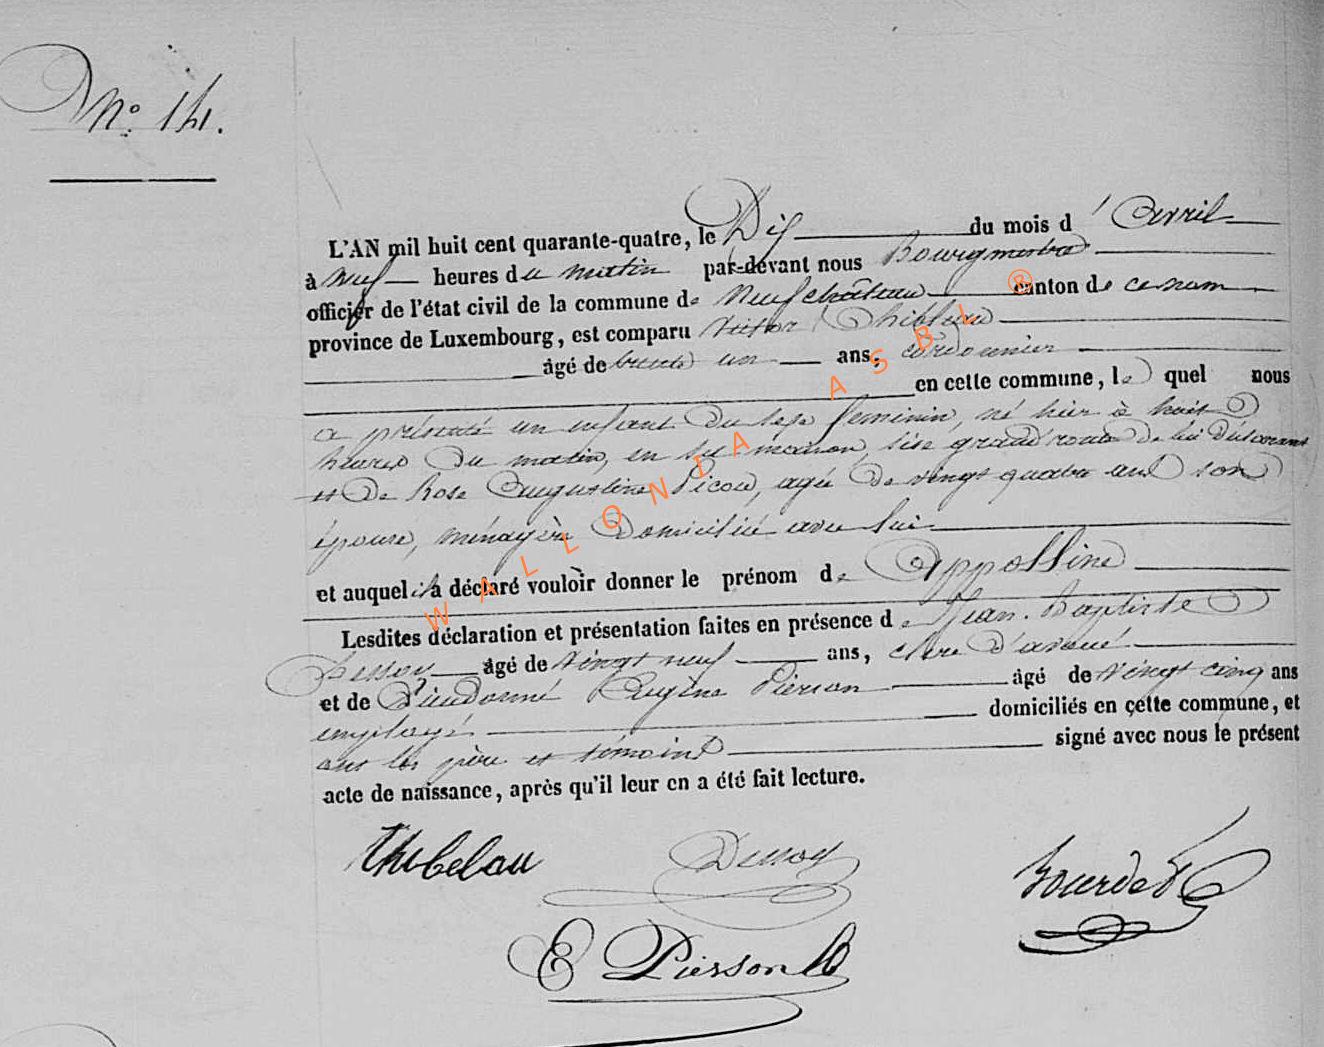 N° 14.
L'AN mil huit cent quarante-quatre, le Dix du mois d'Avril
à neuf heures du matin par-devant nous Bourgmestre
officier de l'état civil de la commune de Neufchâteau canton de ce nom
province de Luxembourg, est comparu Victor Thibleau
âgé de trente un ans, cordonnier
en cette commune, lequel nous
a présenté un enfant du sexe feminin, né hier à huit
heures du matin, en sa maison, sise grand'route de lui déclarant
et de Rose Augustine Picou, agée de vingt quatre ans son
épouse, ménagère domiciliée avec lui
et auquel il a déclaré vouloir donner le prénom de Appolline
Lesdites déclaration et présentation faites en présence de Jean-Baptiste
Dessoy âgé de vingt neuf ans, clerc d'avoué
et de Dieudonné Eugène Pierson âgé de vingt cinq ans
employé domiciliés en cette commune, et
ont les père et témoins signé avec nous le présent
acte de naissance, après qu'il leur en a été fait lecture.
Thibelau Dessoy Bourdet
E Pierson
WALLONIA ASBL ®